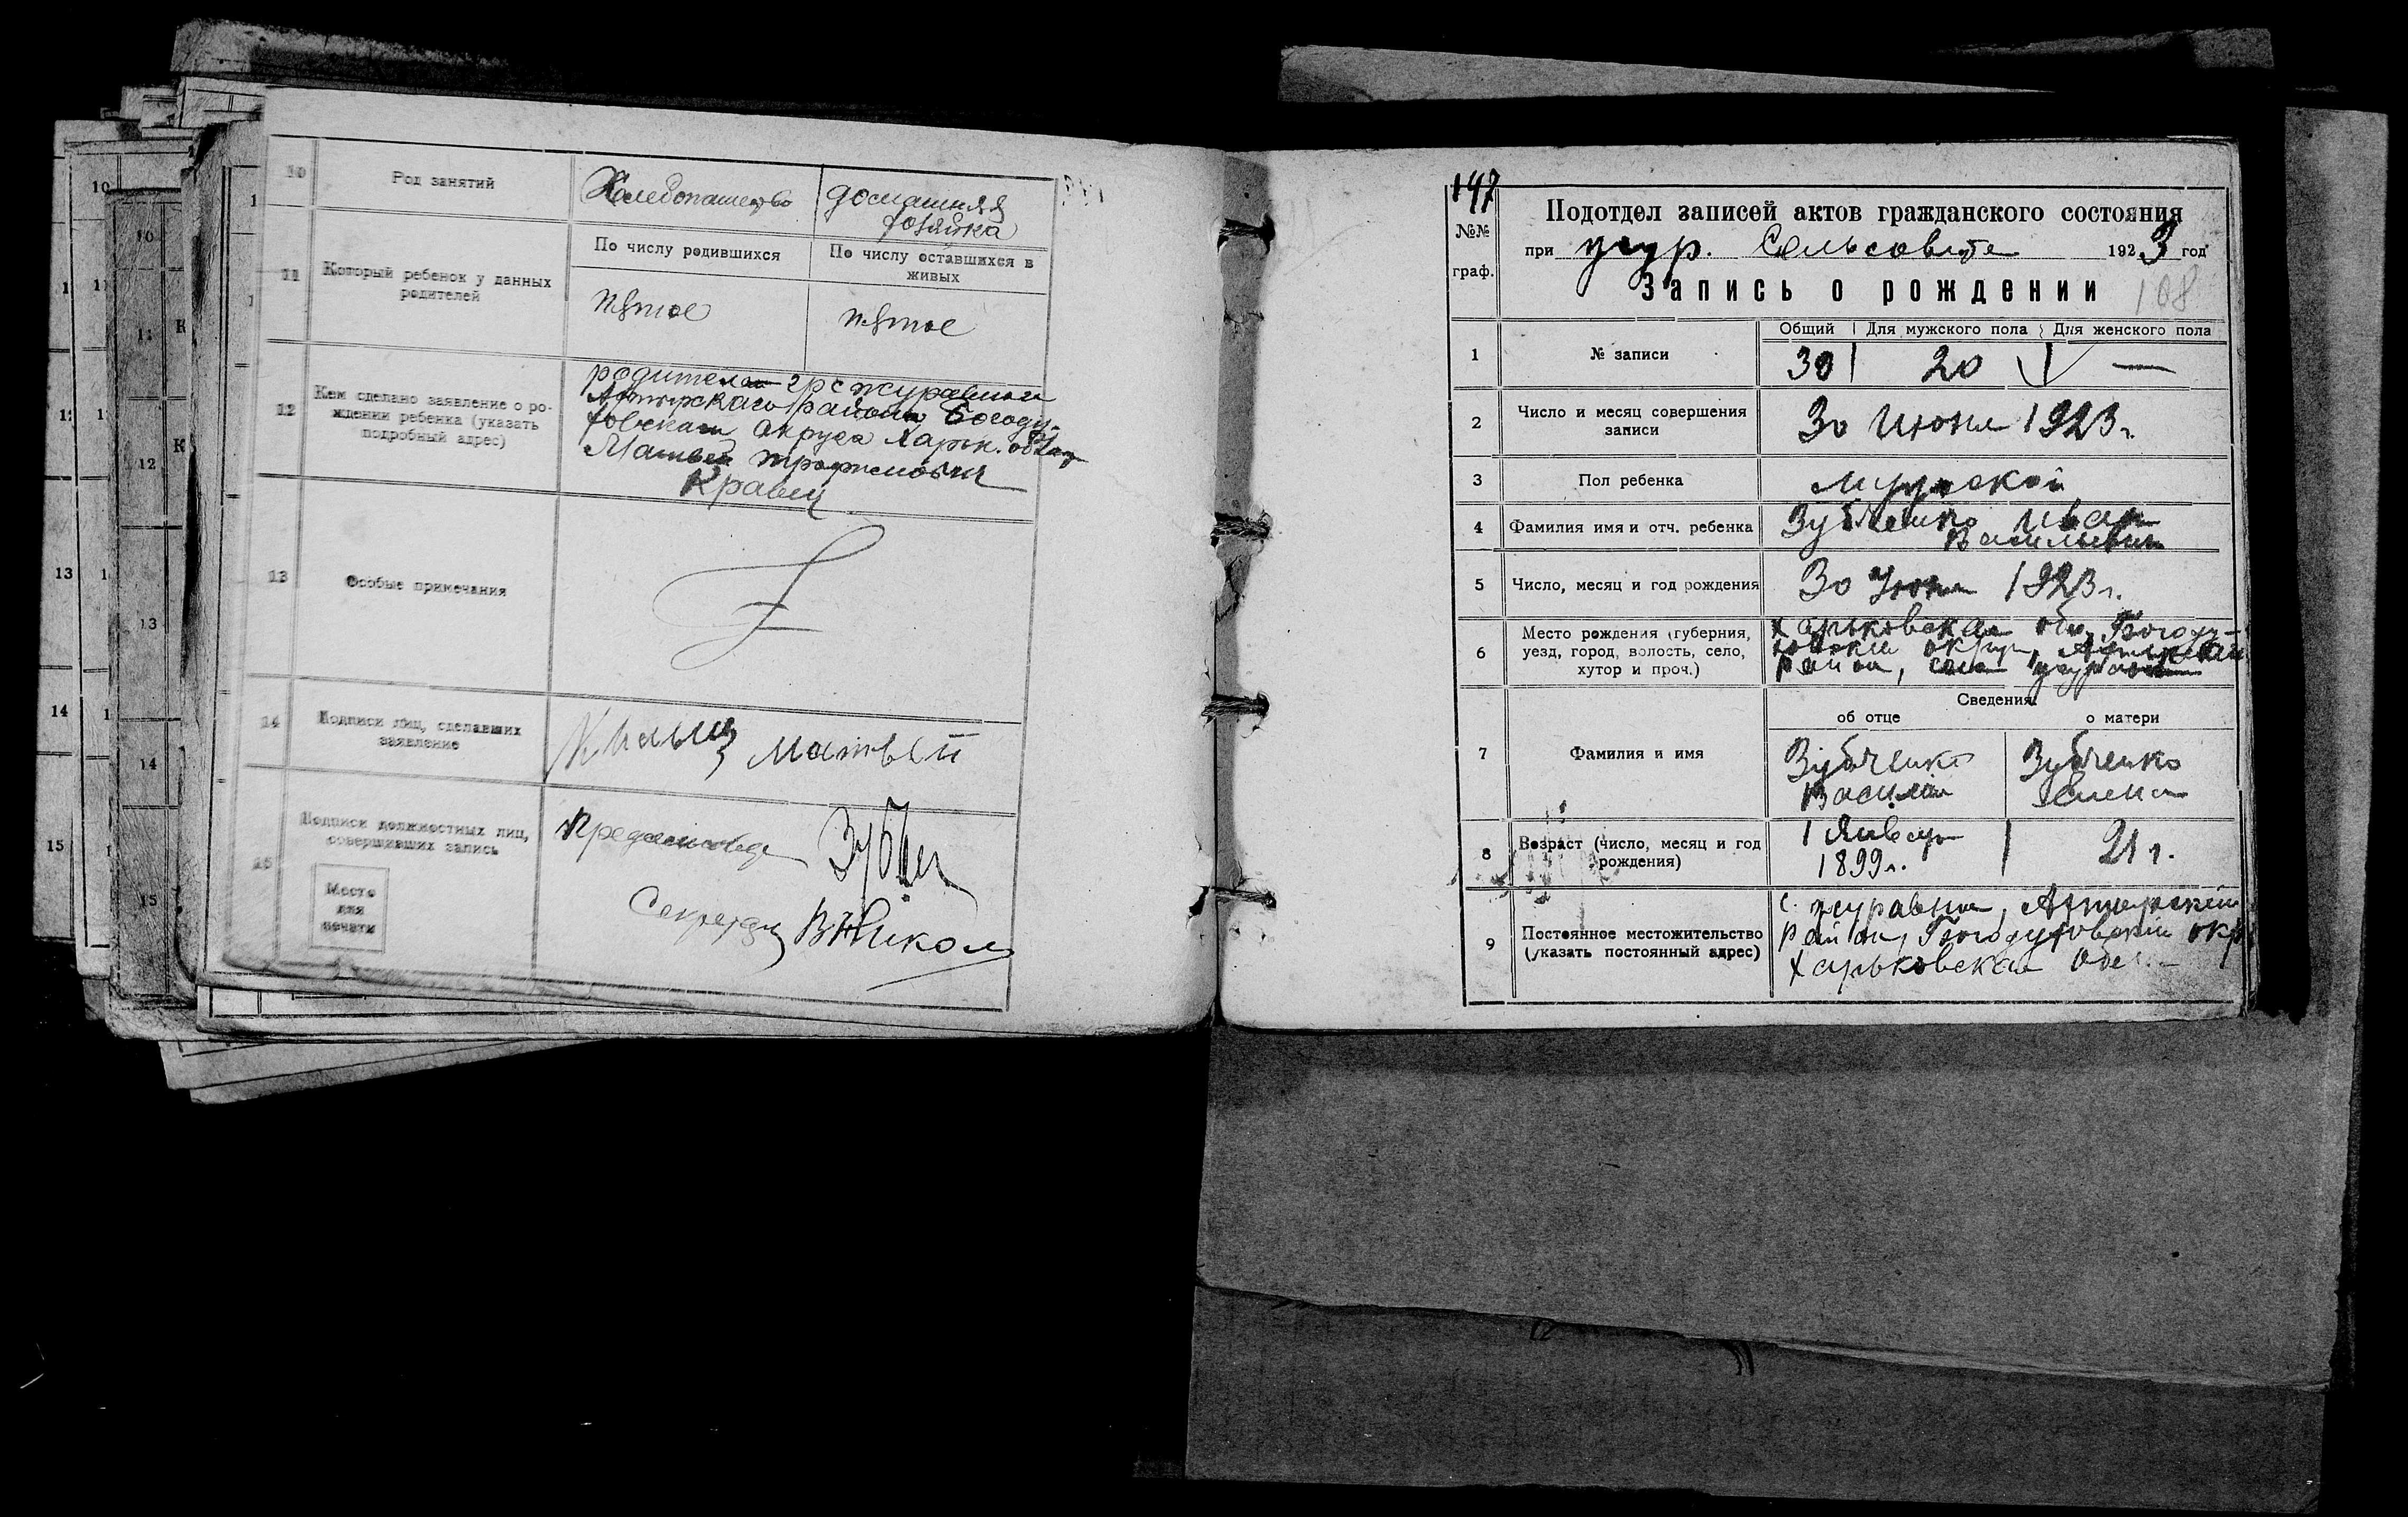 10 Род занятий Хлебопашество домашняя
хозяйка
11 Который ребенок у данных
родителей
По числу родившихся По числу оставшихся в
живых
пятое пятое
12 Кем сделано заявление о ро-
ждении ребенка (указать
подробный адрес)
родителем гр с журавного
Ахтырскаго района Богоду-
ховскаго округа Харьк.
Матвей Трофимович
Кравец
13 Особые примечания
14 Подписи лиц, сделавших
заявление
Матвый
15 Подписи должностных лиц,
совершивших запись
Место
для
печати
Секретарь
147
№№
граф.
Подотдел записей актов гражданского состояния
при жур. Сельсовете 1923 год
Запись о рождении
108
1 № записи
Общий Для мужского пола Для женского пола
30 20 —
2 Число и месяц совершения
записи
30 Июня 1923 г.
3 Пол ребенка мужской
4 Фамилия имя и отч. ребенка Зубченко Иван
Васильевич
5 Число, месяц и год рождения 30 Июня 1923 г.
6 Место рождения (губерния,
уезд, город, волость, село,
хутор и проч.)
Харьковская обл. Богоду-
ховский округ, Ахтырский
район, село
Сведения
об отце о матери
7 Фамилия и имя
Зубченко Зубченко
Василий Елена
8 Возраст (число, месяц и год
рождения)
1 Января
1899 г.
21 г.
9 Постоянное местожительство
(указать постоянный адрес)
с. журавное, Ахтырский
район, Богодуховский окр
Харьковская
10
11
12
13
14
15